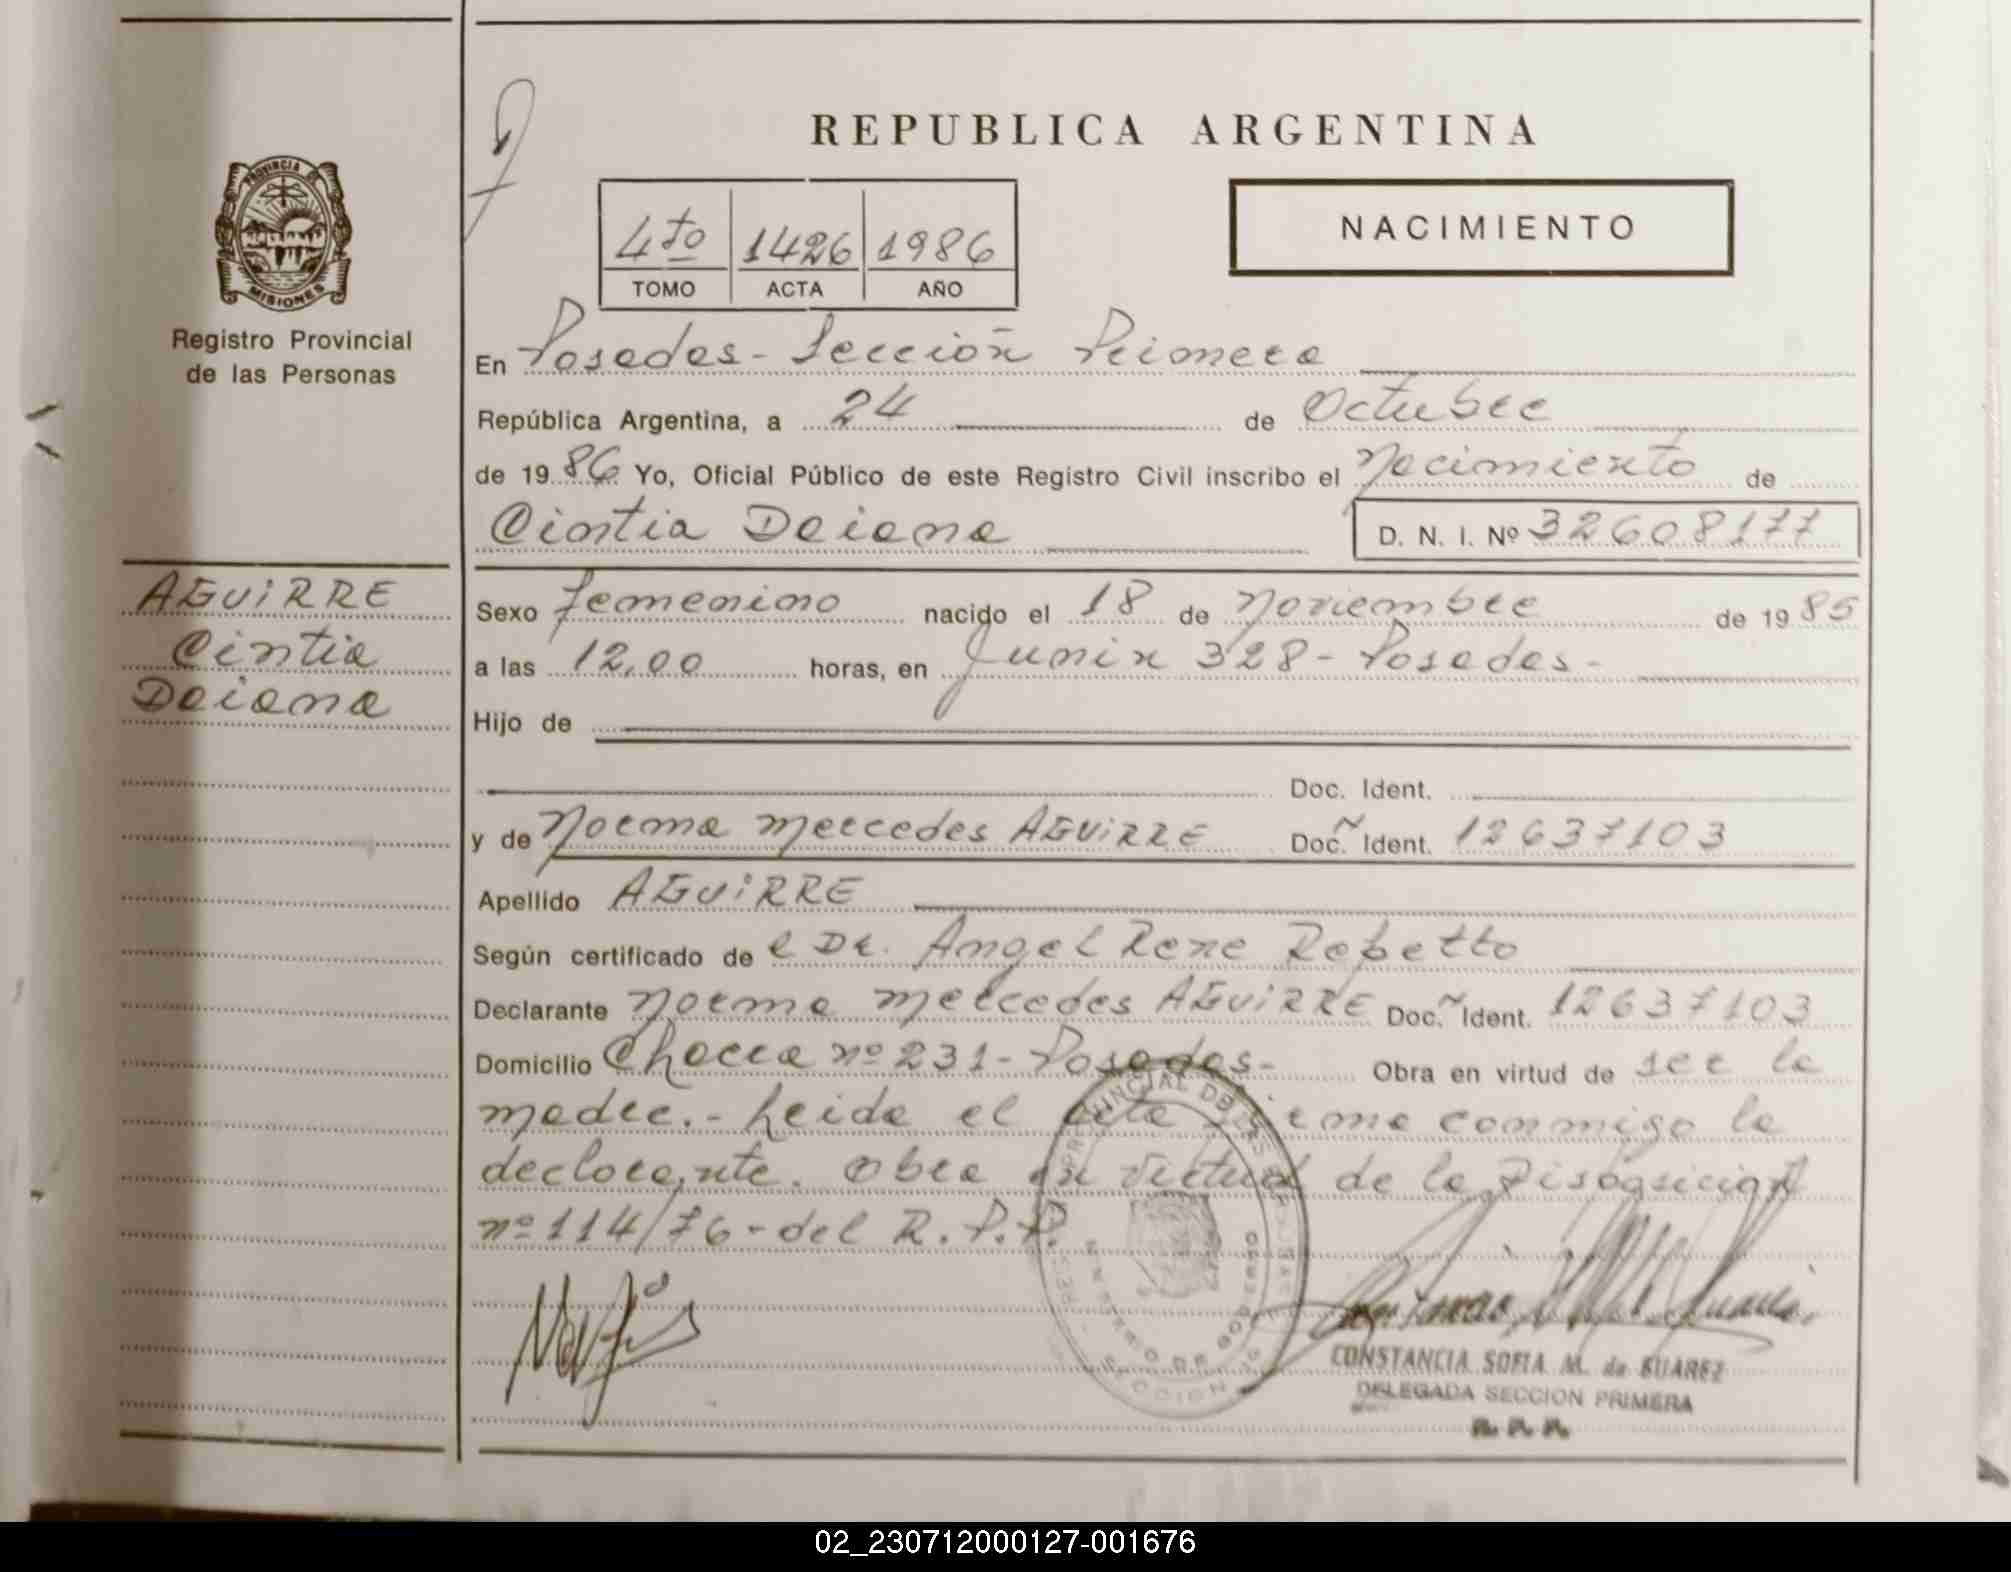 REPUBLICA ARGENTINA
PROVINCIA DE
MISIONES
Registro Provincial
de las Personas
4to 1426 1986
TOMO ACTA AÑO
NACIMIENTO
En Posadas - Sección Primera
República Argentina, a 24 de Octubre
de 1986 Yo, Oficial Público de este Registro Civil inscribo el Nacimiento de
Cintia Daiana D. N. I. Nº 32608177
AGUIRRE
Cintia
Daiana
Sexo femenino nacido el 18 de Noviembre de 1985
a las 12,00 horas, en Junin 328 - Posadas -
Hijo de
Doc. Ident.
y de Norma Mercedes AGUIRRE Doc. Ident. 12637103
Apellido AGUIRRE
Según certificado de el Dr. Angel Rene Repetto
Declarante Norma Mercedes AGUIRRE Doc. Ident. 12637103
Domicilio Chacra nº 231 - Posadas - Obra en virtud de ser la
madre. - Leida el acta firma conmigo la
declarante. Obra en virtud de la Disposición
nº 114/76 - del R. P. P.
CONSTANCIA SOFIA M. de SUAREZ
DELEGADA SECCION PRIMERA
R. P. P.
02_230712000127-001676